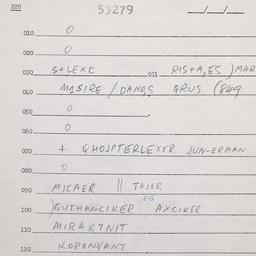 220 53279 __/__/__
010 0
020 0
030 S+LEXC 031 RIS+A,ES )MAR
040 MASIRE / DANQS QRUS (849
050 0
060 0
070 + QHOJPTERLEXER JUN-ERMAN
080 0
090 MICAER || TAJER
100 )GUTHAN-CIKER EQ AXCIKER
110 MIRARTNIT
120 KOPONVANT